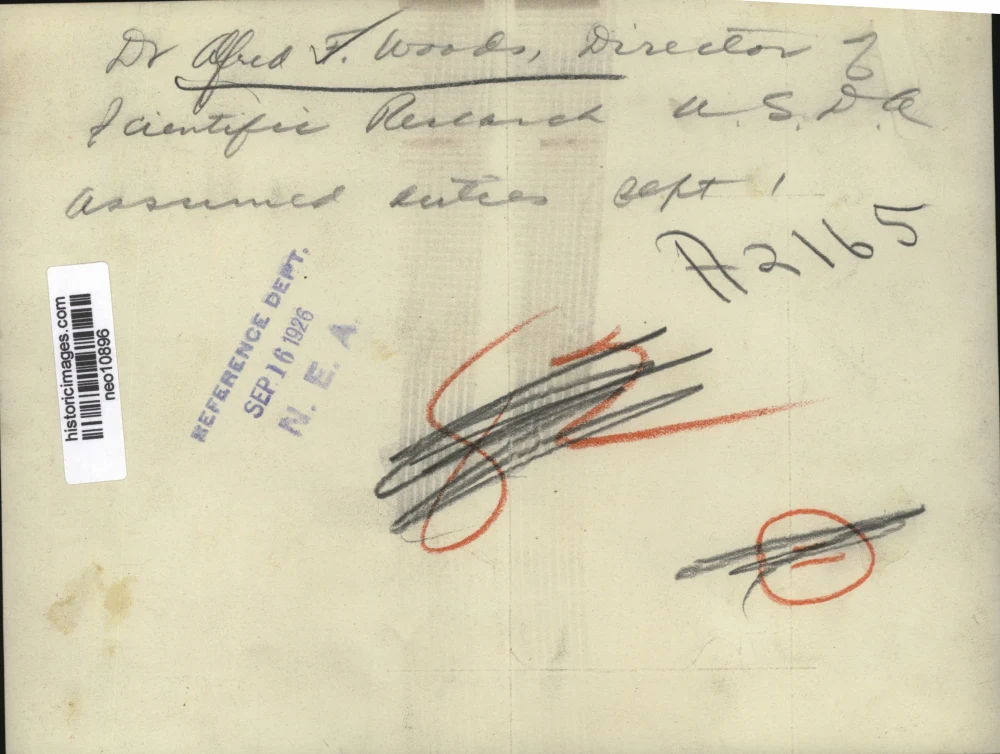 Dr Alfred F. Woods, Director of
Scientific Research U.S.D.A
assumed duties Sept 1
A2165
REFERENCE DEPT.
SEP 16 1926
N. E. A.
historicimages.com
neo10896
82